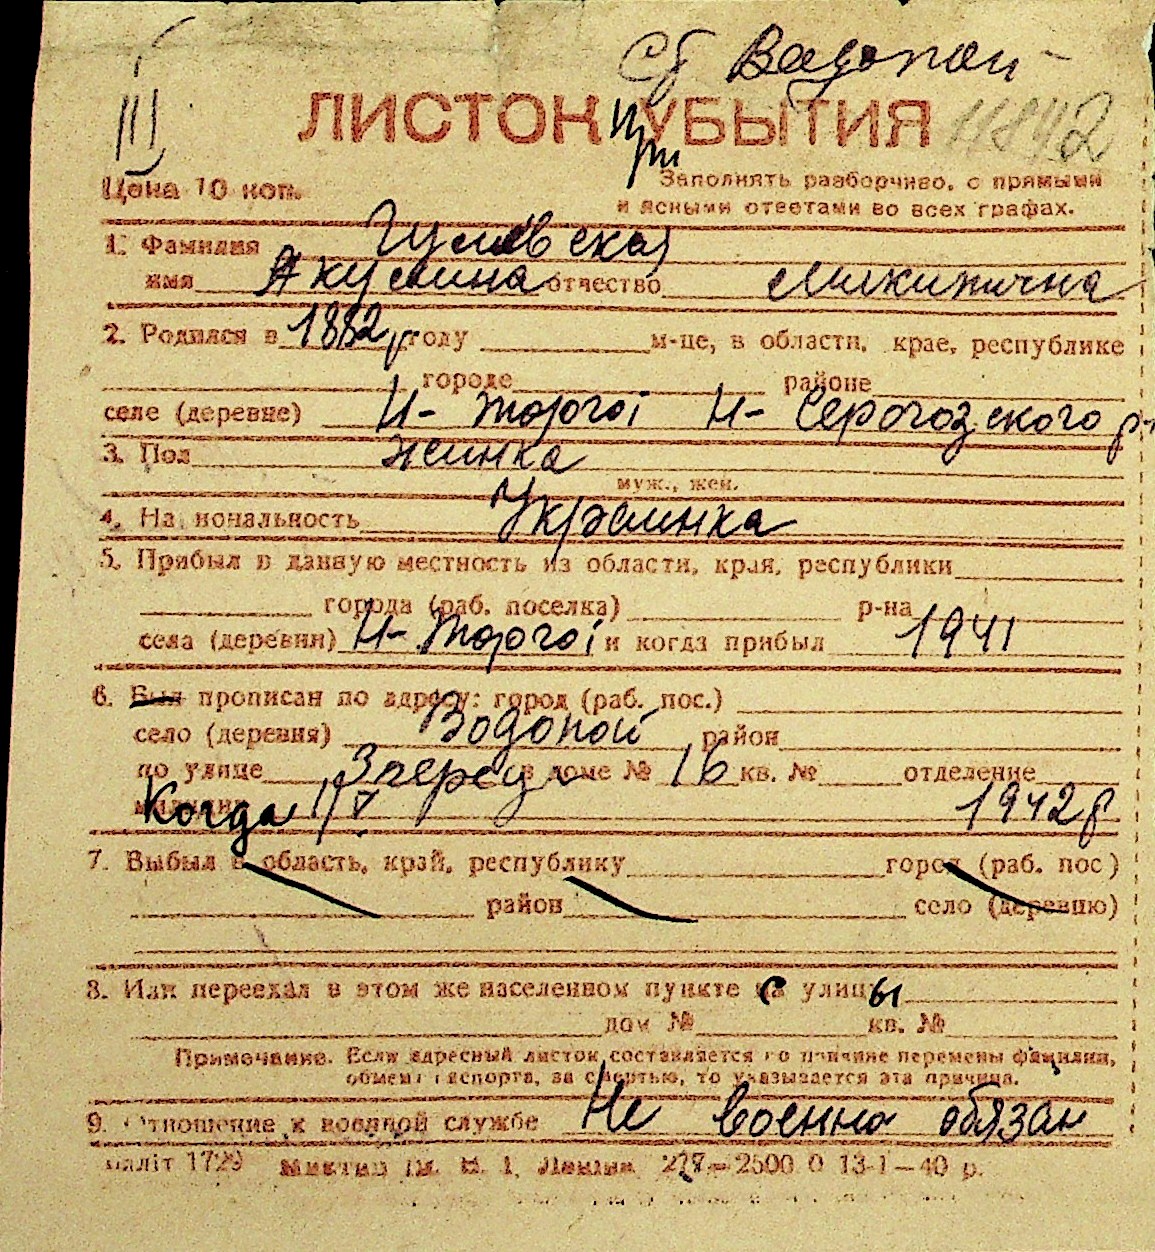 Сб Водопой
III
ЛИСТОК УБЫТИЯ
при
11842
Цена 10 коп.
Заполнять разборчиво, с прямыми
и ясными ответами во всех графах.
1. Фамилия
имя Акулина отчество Микитична
2. Родился в 1882 г году м-це, в области, крае, республике
городе районе
селе (деревне) Н-Торгоі Н-Серогозского р-
3. Пол жинка
муж., жен.
4. Национальность Украинка
5. Прибыл в данную местность из области, края, республики
города (раб. поселка) р-на
села (деревни) Н-Торгоі и когда прибыл 1941
6. Был прописан по адресу: город (раб. пос.)
село (деревня) Водопой район
по улице 3 перец в доме № 16 кв. № отделение
милиции Когда 1/V 1942 г
7. Выбыл в область, край, республику город (раб. пос)
район село (деревню)
8. Или переехал в этом же населенном пункте с улицы
дом № кв. №
Примечание. Если адресный листок составляется по причине перемены фамилии,
обмена паспорта, за смертью, то указывается эта причина.
9. Отношение к военной службе Не военно обязан
1729 Ленина 2500 0 13-1—40 р.